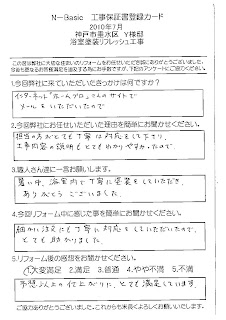 N-Basic 工事保証書登録カード
2010年7月
神戸市垂水区 Y様邸
浴室塗装リフレッシュ工事
この度弊社に大切な住まいのリフォームをお任せいただき誠にありがとうございました。
1.今回弊社に来ていただいたきっかけは何ですか?
インターネット ホームプロさんのサイトで
メールをいただいたので
2.今回弊社にお任せいただいた理由を簡単にお聞かせください。
担当の方がとても丁寧な対応をして下さり、
工事内容の説明もとてもわかりやすかったので。
3.職人さん達に一言お願いします。
暑い中、浴室内で丁寧に塗装をしていただき、
ありがとうございました。
4.今回リフォーム中に感じた事を簡単にお聞かせください。
細かい注文にも丁寧に対応をしていただいたので、
とても助かりました。
5.リフォーム後の感想をお聞かせください
①.大変満足 2.満足 3.普通 4.やや不満 5.不満
予想以上の仕上がりに、とても満足しています。
ご協力ありがとうございました。これからも末長くよろしくお願いいたします。